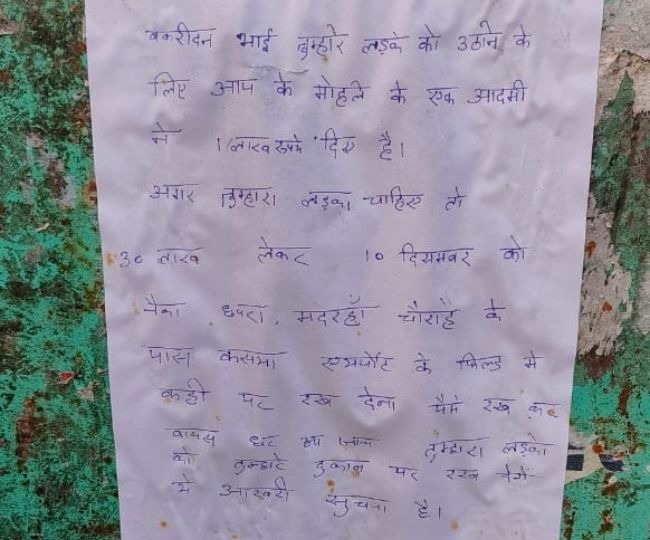 बकरीदन भाई तुम्हारे लड़के को उठाने के
लिए आप के मोहले के एक आदमी
ने 1 लाख रुपये दिए है।
अगर तुम्हारा लड़का चाहिए तो
30 लाख लेकर 10 दिसमबर को
छपरा, मदरहाँ चौराहे के
पास कसया एयरपोर्ट के फिल्ड मे
कही पर रख देना पैसे रख कर
वापस घर आ जाना तुम्हारा लड़के
को तुम्हारे दुकान पर रख देगें
ये आखरी सुचना है।